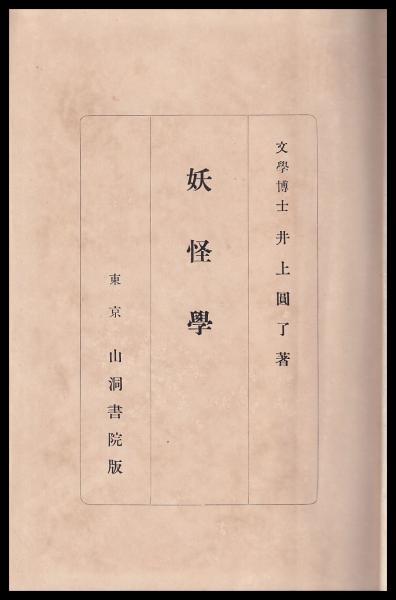 文學博士 井上圓了著
妖怪學
東京 山洞書院版